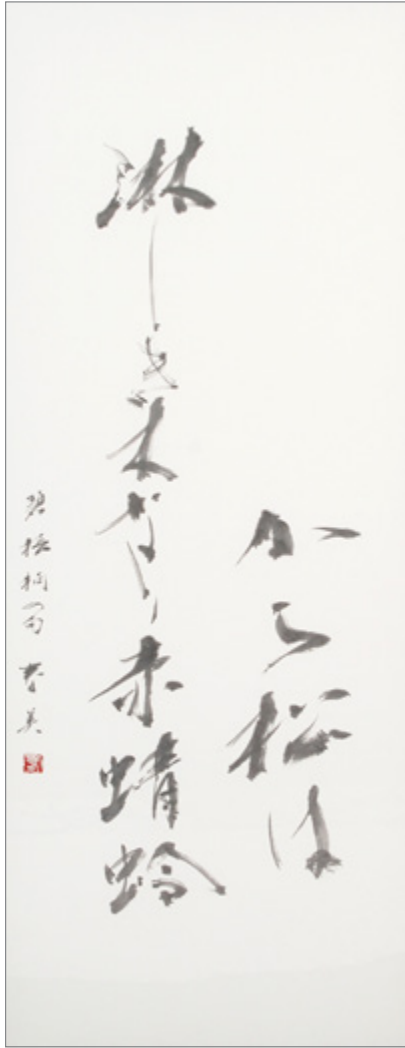 から松は
淋しき木なり赤蜻蛉
碧梧桐句 春美